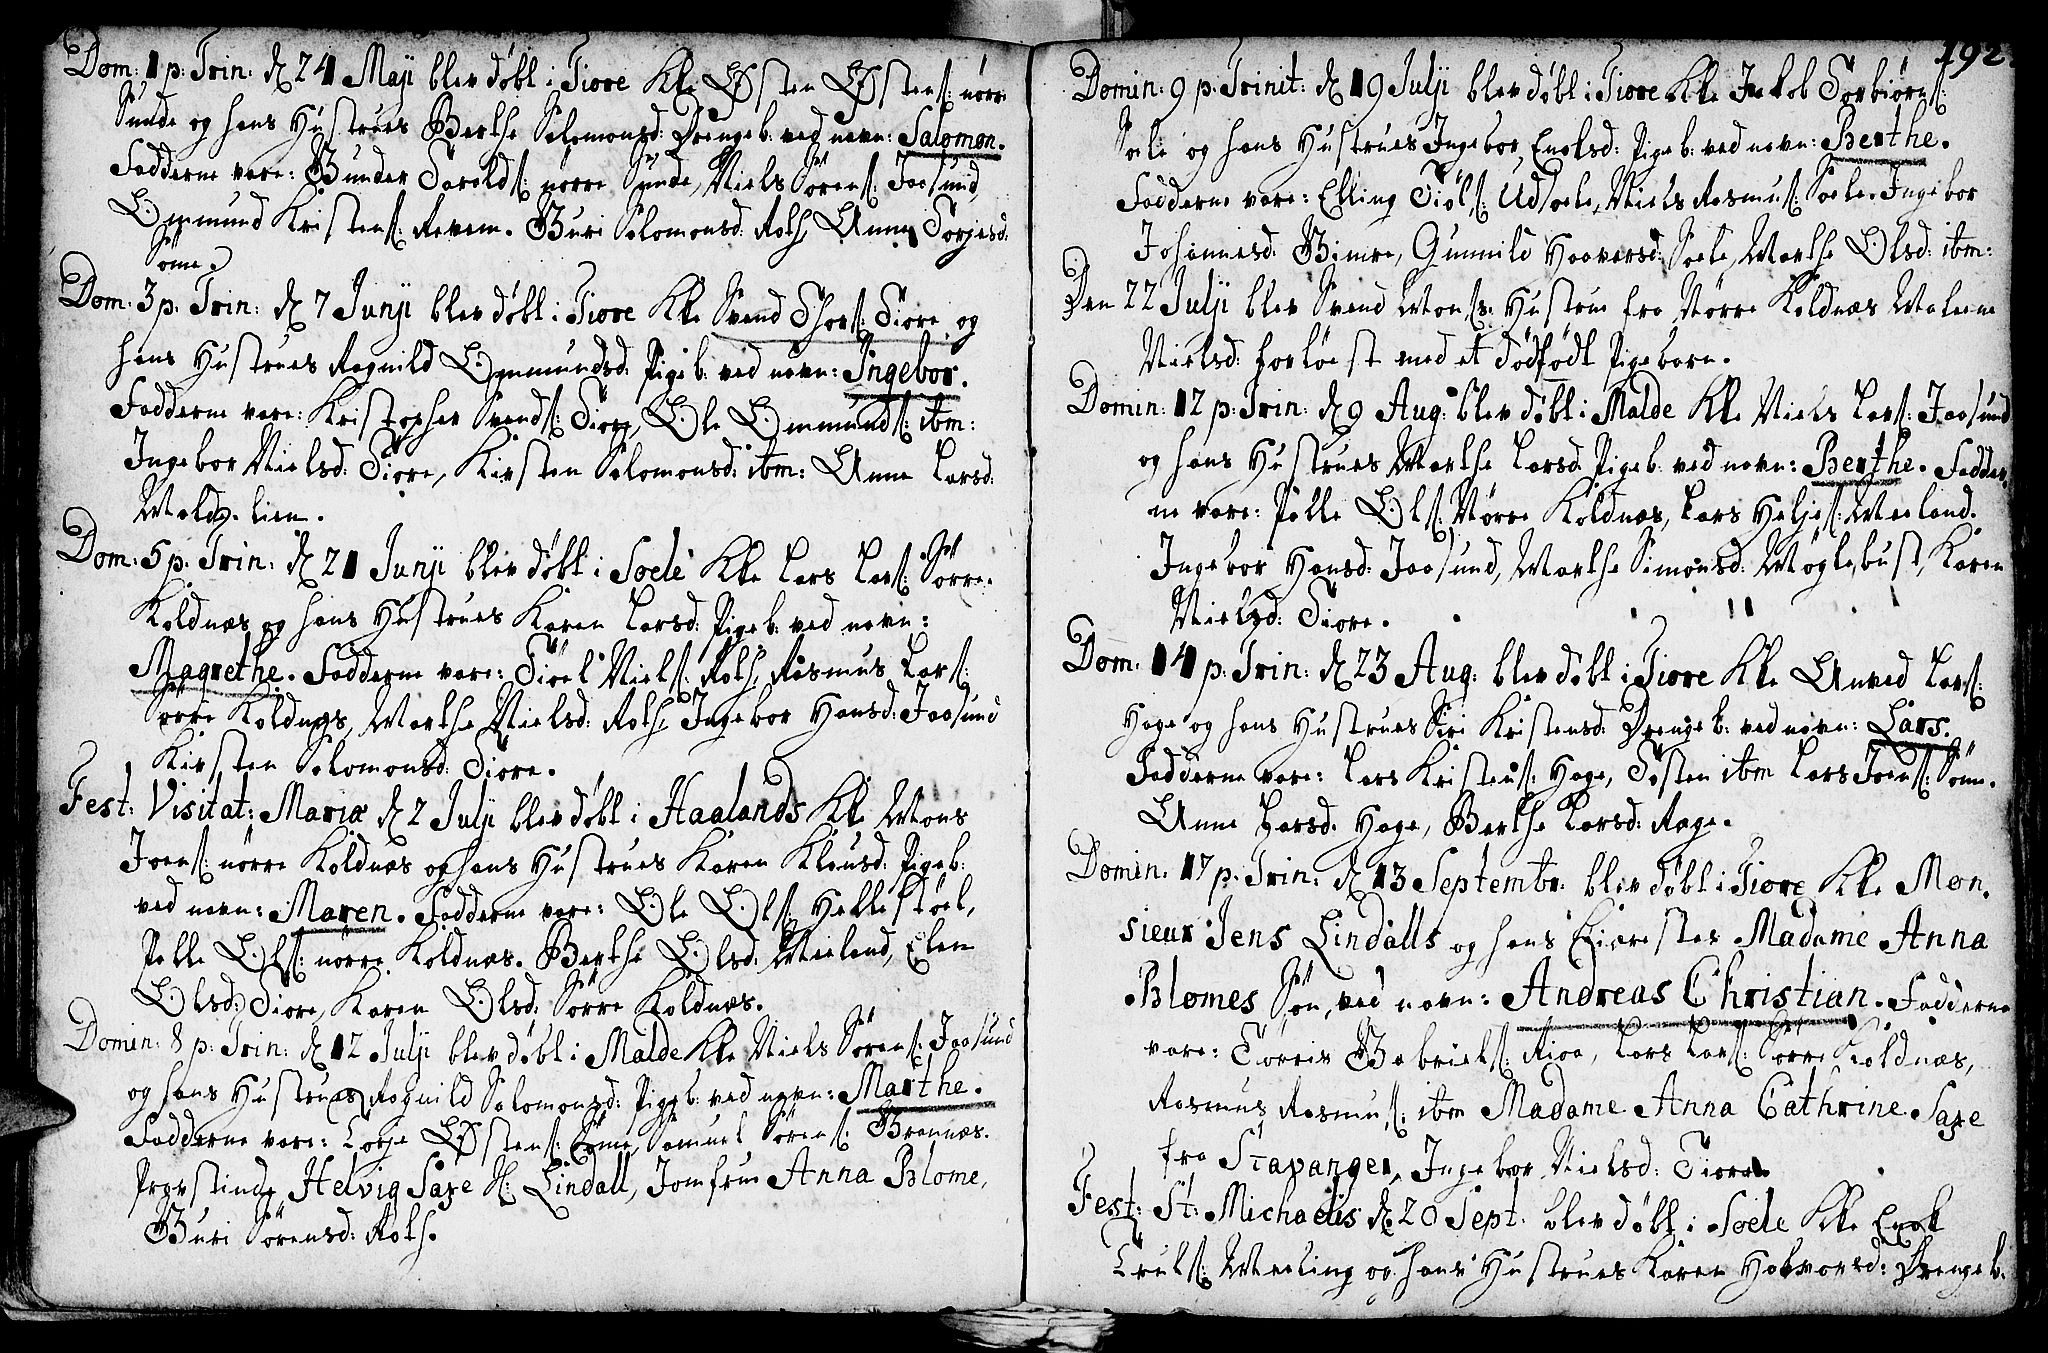 Dom: 1 p: Trin: d 24 Maji blev døbt i Tiore Kke Østen Østens: nørre
Sunde og hans Hustrues Berthe Solomonsd: Drengeb. ved navn: Salomon.
Fadderne vare: Gunder Torolds: nørre Sunde, Niels Sörens: Joasund,
Ommund Kristens: Revem. Guri Solomonsd: Roth, Anne Torjesd:
Some.
Dom: 3 p: Trin: d 7 Junji blev døbt i Tiore Kke Svend Thors: Tiore og
hans Hustrues Ragnild Ommundsd: Pigeb: ved navn: Ingebor.
Fadderne vare: Kristopher Svends: Tiore, Ole Ommunds: ibm:
Ingebor Nielsd: Tiore, Kirsten Solomonsd: ibm: Anne Larsd:
Meldz. lien.
Dom: 5 p: Trin: d 21 Junji blev døbt i Soele Kke Lars Lars: Sørre
Koldnæs og hans Hustrues Karen Larsd: Pigeb: ved navn:
Magrethe. Fadderne vare: Tiöel Niels: Roth, Rasmus Lars:
Sørre Koldnæs, Marthe Nielsd: Roth, Ingebor Hansd: Joasund
Kirsten Solomonsd: Tiore.
Fest: Visitat: Mariæ d 2 Julji blev døbt i Haalands Kke Mons
Joens: nörre Koldnæs og hans Hustrues Karen Klausd: Pigeb:
ved navn: Maren. Fadderne vare: Ole Ols: Hellestöel,
Pelle Ols: nörre Koldnæs. Berthe Olsd: Meeland, Elen
Olsd: Tiore, Karen Olsd: Sörre Koldnæs.
Domin: 8 p: Trin: d 12 Julji blev døbt i Malde Kke Niels Sörens: Joasund
og hans Hustrues Ragnild Solomonsd: Pigeb: ved navn: Marthe.
Fadderne vare: Torje Østens: Some, Samuel Sörens: Grannæs.
Præstinde Helvig Saxe H: Lindall, Jomfrue Anna Blome,
Guri Sörensd: Roth.
192.
Domin: 9 p: Trinit: d 19 Julji blev døbt i Tiore Kke Jakob Torbiörns:
Soele og hans Hustrues Ingebor Enolsd: Pigeb: ved navn: Berthe.
Fadderne vare: Elling Tiöls: Udsoele, Niels Rasmus: Soele. Ingebor
Johannesd: Gimre, Gunnild Haaversd: Soele, Marthe Olsd: ibm:
Den 22 Julji blev Svend Mons: Hustrue fra Nörre Koldnæs Malene
Nielsd: forlöest med et dödfödt Pigebarn.
Domin: 12 p: Trin: d 9 Aug: blev døbt i Malde Kke Niels Lars: Joasund
og hans Hustrues Marthe Larsd: Pigeb: ved navn: Berthe. Fadder,
ne vare: Pelle Ols: Nörre Koldnæs, Lars Heljes: Meeland.
Ingebor Hansd: Joasund, Marthe Simonsd: Möglebust, Karen
Nielsd: Tiore.
Dom: 14 p: Trin: d 23 Aug: blev døbt i Tiore Kke Anved Lars:
Hage og hans Hustrues Siri Kristensd: Drengeb: ved navn: Lars.
Fadderne vare: Lars Kristens: Hage, Tosten ibm Lars Joens: Söme.
Anne Larsd: Hage, Berthe Larsd: Rage.
Domin: 17 p: Trin: d 13 Septembr: blev døbt i Tiore Kke Mon,
sieur Jens Lindalls og hans Kiærestes Madame Anna
Blomes Sön, ved navn: Andreas Christian. Fadderne
vare: Törris Gabriels: Rioa, Lars Lars: Sörre Koldnæs,
Rasmus Rasmus: ibm Madame Anna Cathrine Saxe
fra Stavanger, Ingebor Nielsd: Tiore
Fest: St: Michaelis d 20 Sept: blev døbt i Soele Kke Enok
Truls: Meeling og hans Hustrues Karen Halvorsd: Drengeb.